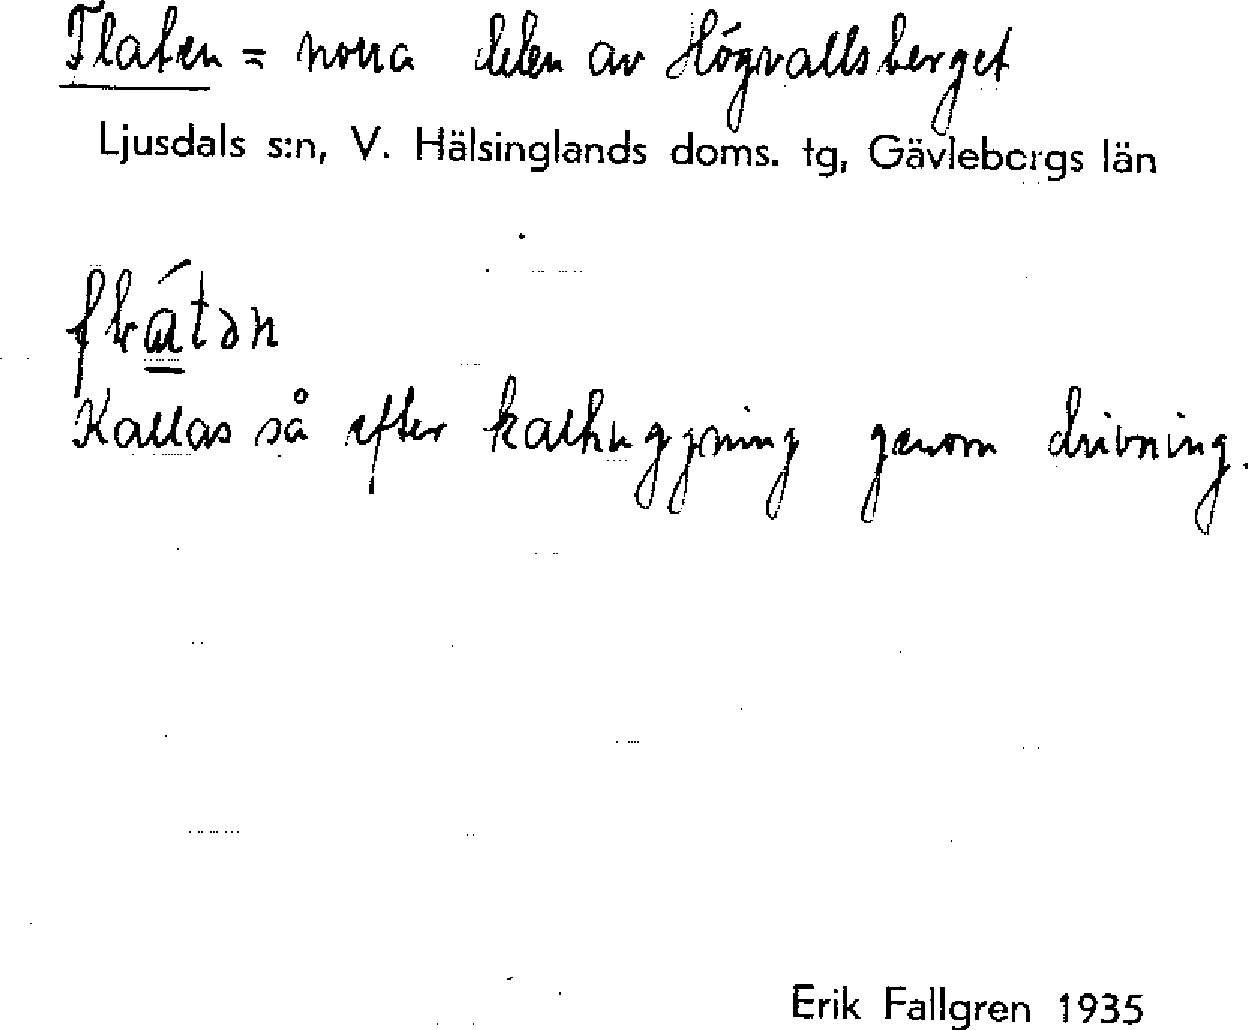 Flaten = norra delen av Högvallsberget
Ljusdals s:n, V. Hälsinglands doms. tg, Gävlebergs län
Kallas så efter kalhuggning genom drivning.
Erik Fallgren 1935